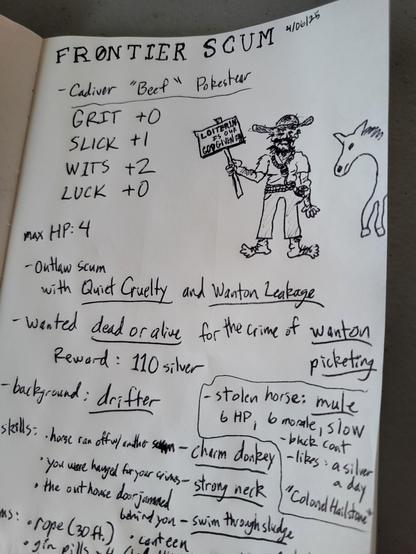 FRONTIER SCUM
4/06/25
- Cadiver "Beef" Pokestear
GRIT +0
SLICK +1
WITS +2
LUCK +0
LOITERIN
IS OUR
GODGIVEN
max HP: 4
- Outlaw scum
with Quiet Cruelty and Wanton Leakage
- Wanted dead or alive for the crime of wanton
picketing
Reward: 110 silver
- background: drifter
- stolen horse: mule
6 HP, 6 morale, slow
- black coat
- likes: a silver
a day
"Colonel Hailstone"
skills: • horse ran off w/ another - charm donkey
• you were hanged for your crimes - strong neck
• the outhouse door jammed
behind you - swim through sludge
ms: • rope (30 ft.) • canteen
• gin pills